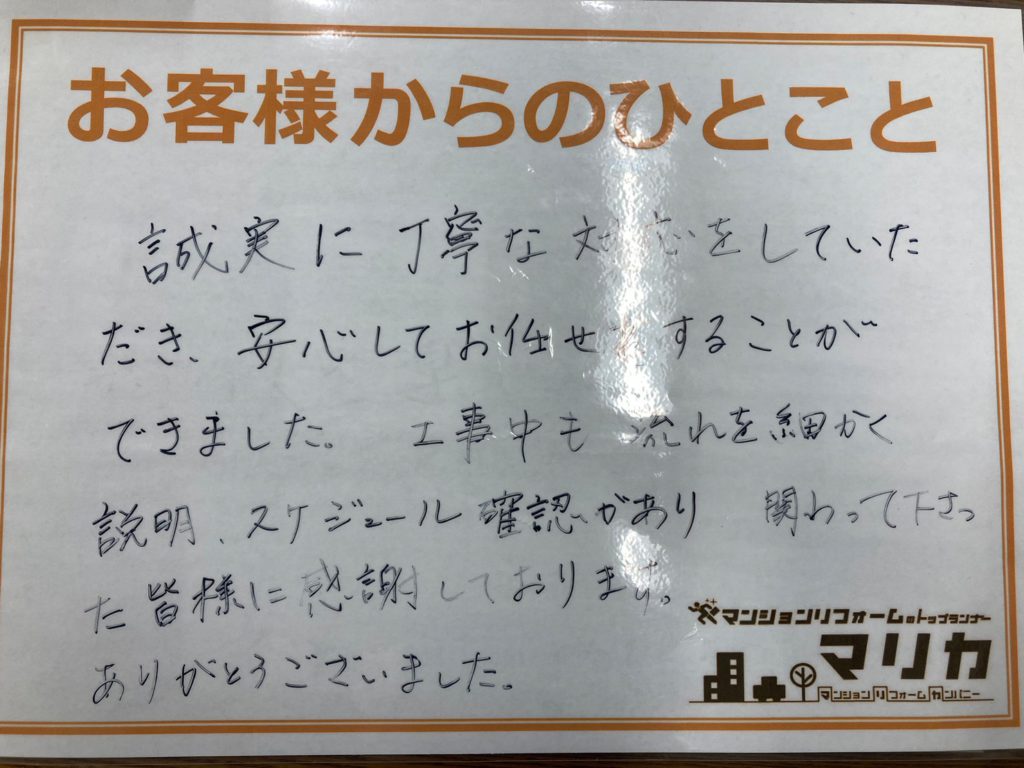 お客様からのひとこと
誠実に丁寧な対応をしていた
だき、安心してお任せをすることが
できました。 工事中も 流れを細かく
説明、スケジュール確認があり 関わって下さっ
た皆様に感謝しております。
ありがとうございました。
マンションリフォームのトップランナー
マリカ
マンションリフォームカンパニー